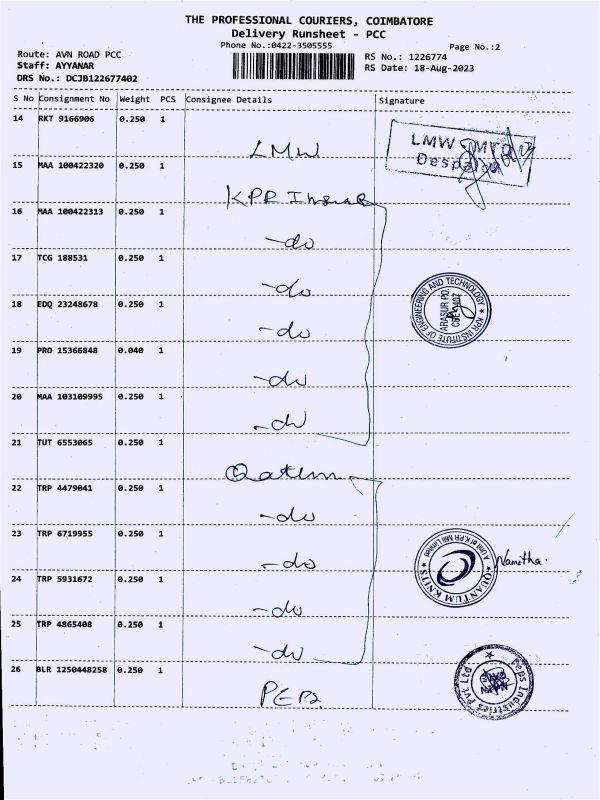 THE PROFESSIONAL COURIERS, COIMBATORE
Delivery Runsheet - PCC
Phone No.:0422-3505555
Page No.:2
Route: AVN ROAD PCC
Staff: AYYANAR
DRS No.: DCJB122677402
RS No.: 1226774
RS Date: 18-Aug-2023
S No Consignment No Weight PCS Consignee Details Signature
14 RKT 9166906 0.250 1
LMW
LMW
15 MAA 100422320 0.250 1
KPR
16 MAA 100422313 0.250 1
-do
17 TCG 188531 0.250 1
-do
18 EDQ 23248678 0.250 1
-do
KPR INSTITUTE OF ENGINEERING AND TECHNOLOGY
ARASUR PO.
19 PRO 15366848 0.040 1
-do
20 MAA 103109995 0.250 1
-do
21 TUT 6553065 0.250 1
22 TRP 4479041 0.250 1
-do
23 TRP 6719955 0.250 1
-do
QUANTUM KNITS
A Unit of K.P.R Mill Limited
Namitha.
24 TRP 5931672 0.250 1
-do
25 TRP 4865408 0.250 1
-do
26 BLR 1250448258 0.250 1
Peps Industries Pvt Ltd